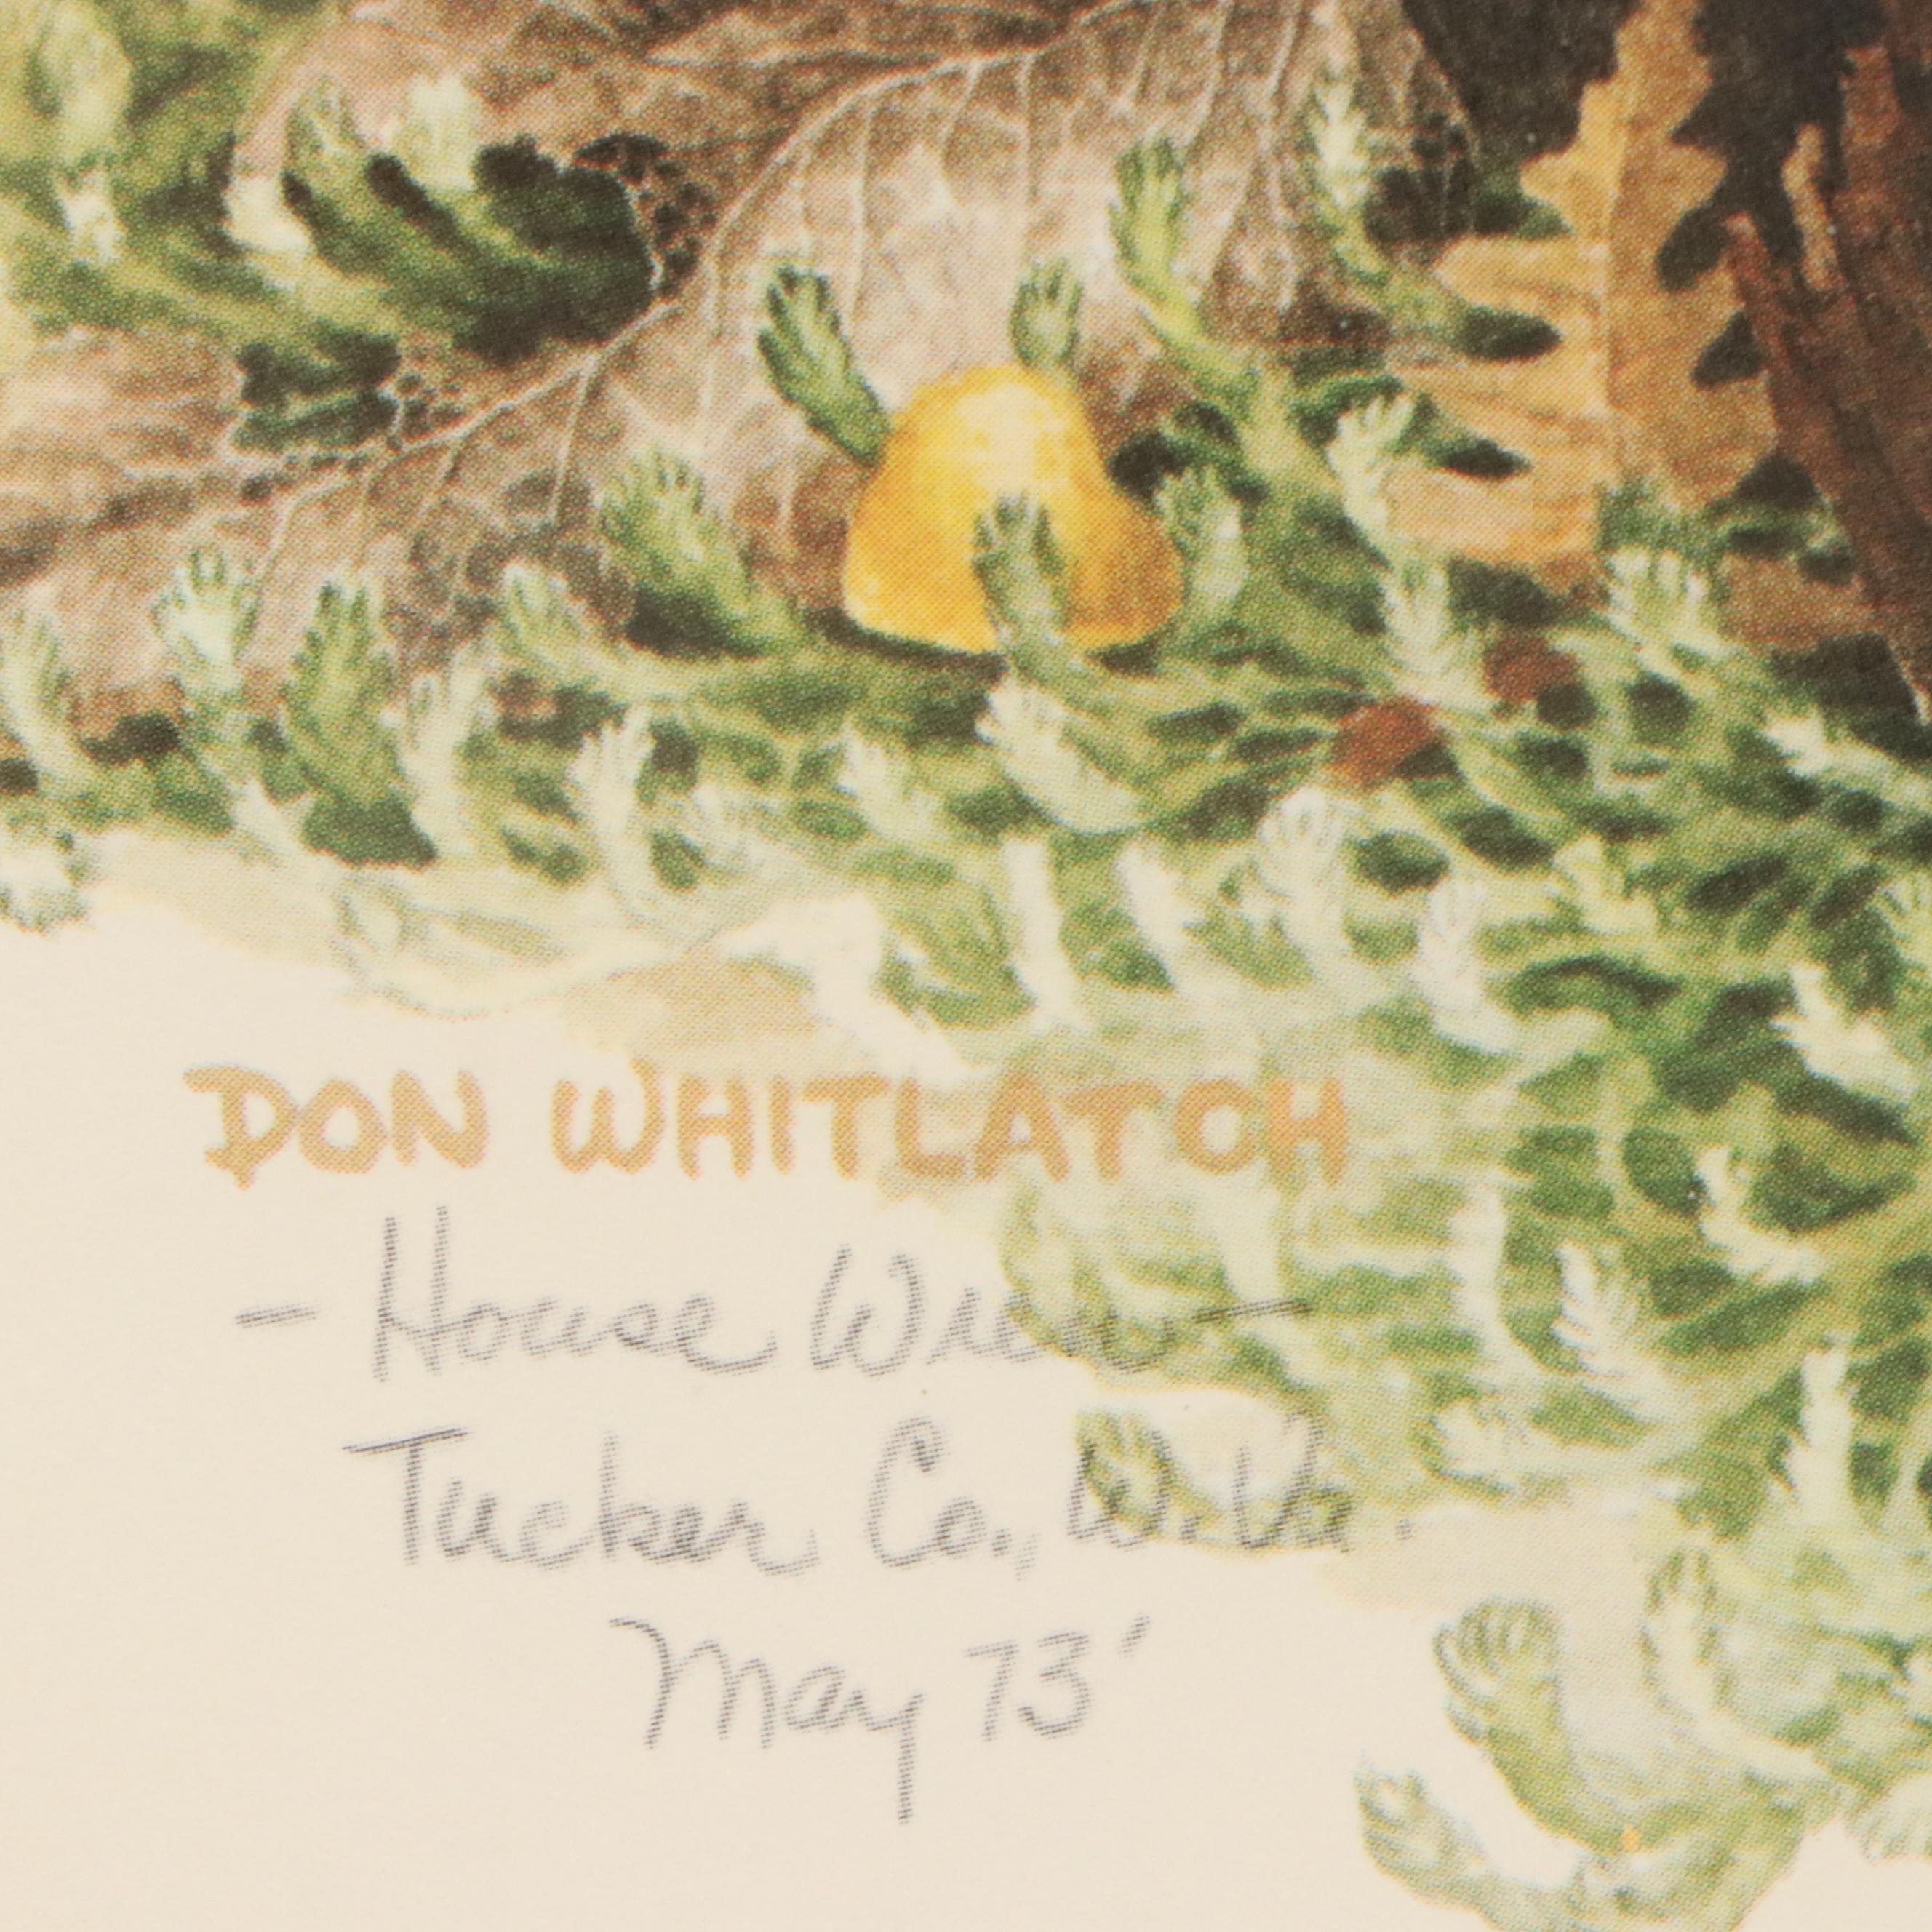 DON WHITLATCH
- House Wren -
Tucker Co., W. Va.
May 73'